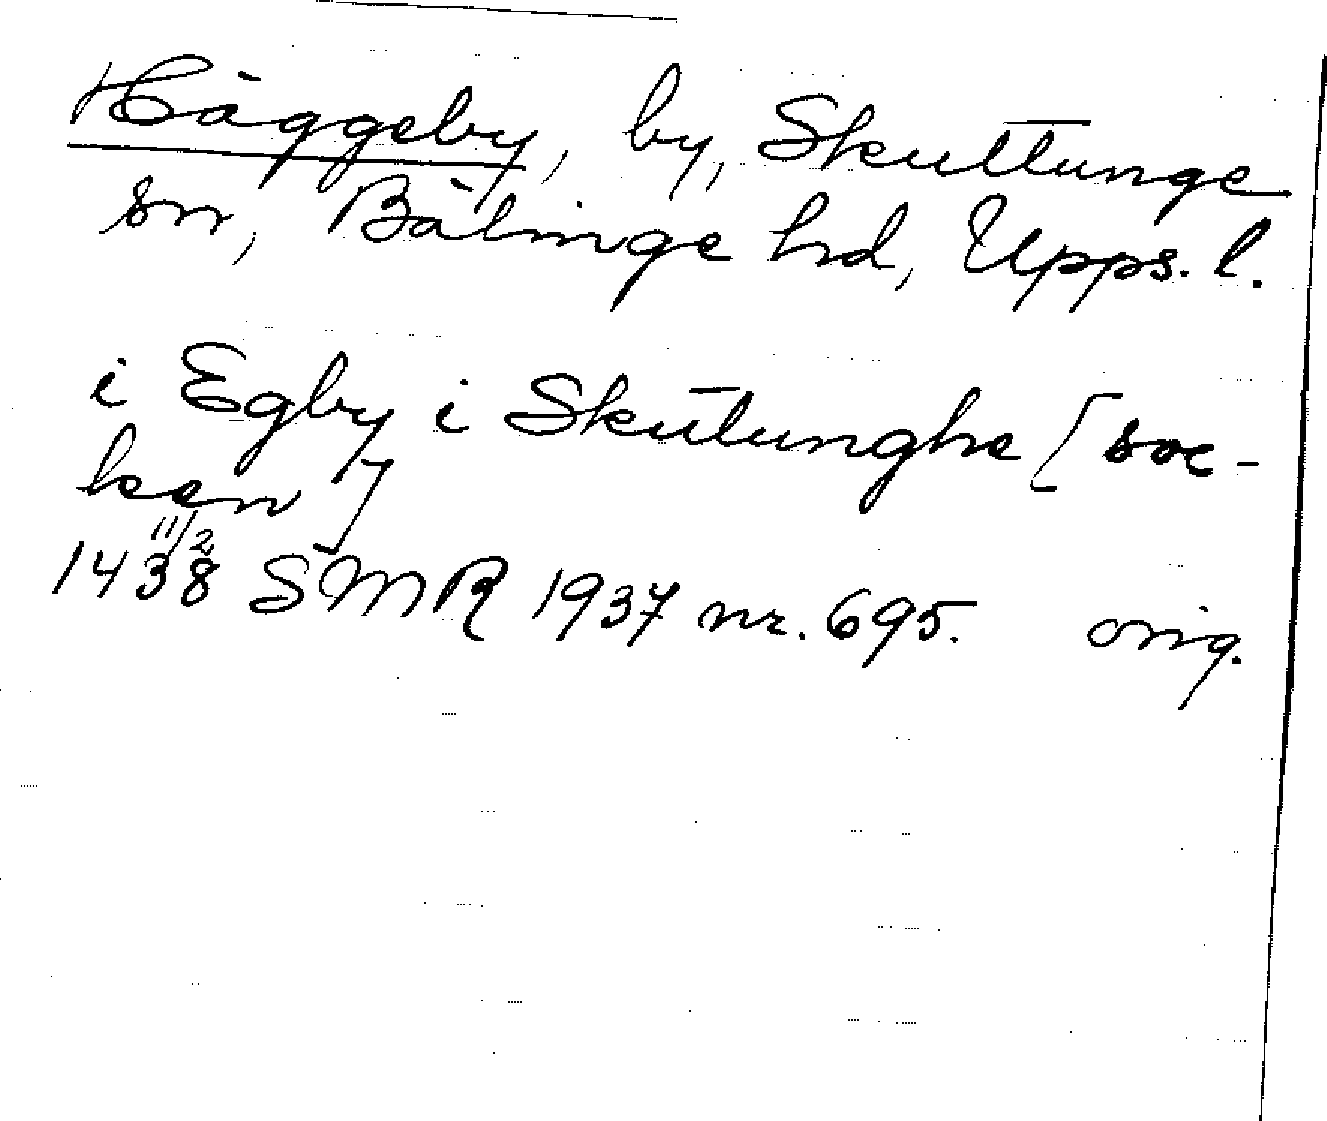 Häggeby, by, Skuttunge
sn, Bälinge hd, Upps. l.
i Egby i Skutunghe [soc-
ken]
11/2
1438 SMR 1937 nr. 695. orig.